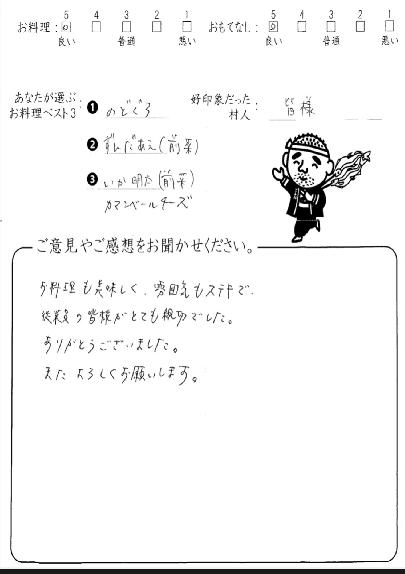 5 4 3 2 1 5 4 3 2 1
お料理: おもてなし:
良い 普通 悪い 良い 普通 悪い
あなたが選ぶ
お料理ベスト3:
❶ のどぐろ
好印象だった
村人:
皆様
❷ ずんだあえ(前菜)
❸ いか明太(前菜)
カマンベールチーズ
ご意見やご感想をお聞かせください。
お料理も美味しく、雰囲気もステキで、
従業員の皆様がとても親切でした。
ありがとうございました。
また よろしくお願いします。